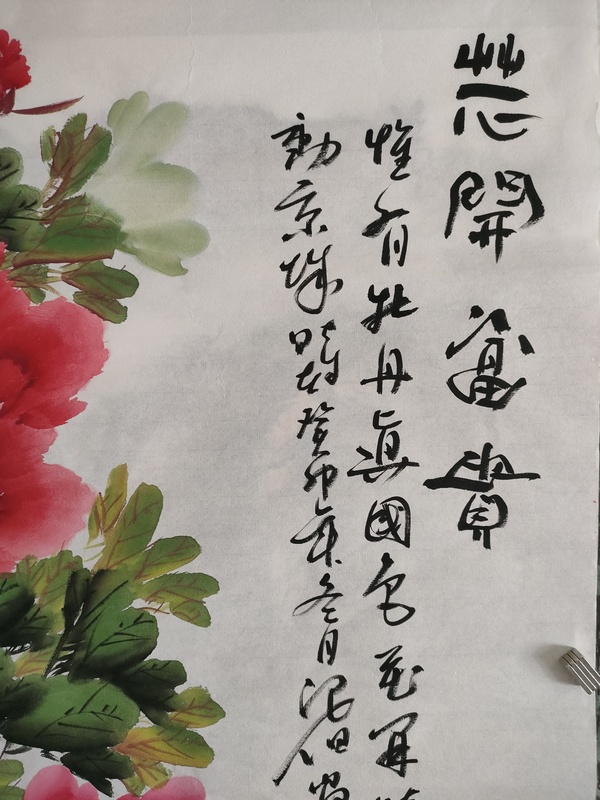 花開富貴
惟有牡丹真國色花開
動京城時在癸卯年冬月